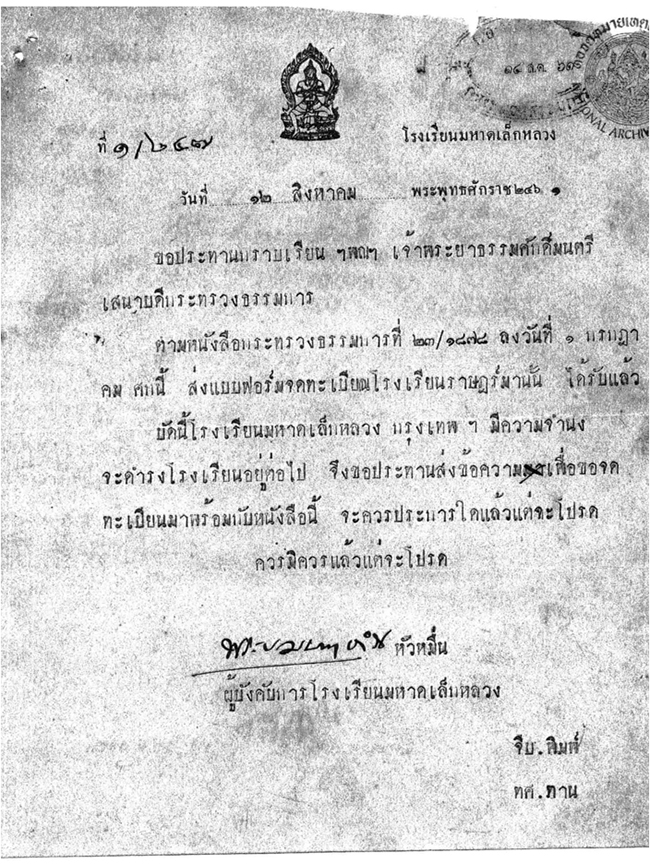 ๑๔ ส.ค. ๖๑
หอจดหมายเหตุ
NATIONAL ARCHIV
ที่ ๑/๒๔๗
โรงเรียนมหาดเล็กหลวง
วันที่ ๑๒ สิงหาคม พระพุทธศักราช ๒๔๖๑
ขอประทานกราบเรียน ฯพณฯ เจ้าพระยาธรรมศักดิ์มนตรี
เสนาบดีกระทรวงธรรมการ
ตามหนังสือกระทรวงธรรมการที่ ๒๓/๑๘๗๘ ลงวันที่ ๑ กรกฎา
คม ศกนี้ ส่งแบบฟอร์มจดทะเบียนโรงเรียนราษฎร์มานั้น ได้รับแล้ว
บัดนี้โรงเรียนมหาดเล็กหลวง กรุงเทพ ฯ มีความจำนง
จะดำรงโรงเรียนอยู่ต่อไป จึงขอประทานส่งข้อความเพื่อขอจด
ทะเบียนมาพร้อมกับหนังสือนี้ จะควรประการใดแล้วแต่จะโปรด
ควรมิควรแล้วแต่จะโปรด
หัวหมื่น
ผู้บังคับการโรงเรียนมหาดเล็กหลวง
จีบ.พิมพ์
ทศ.ทาน